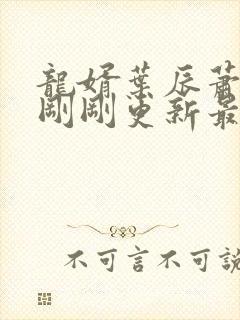 龍婿葉辰蕭
剛剛更新最
不可言不可說